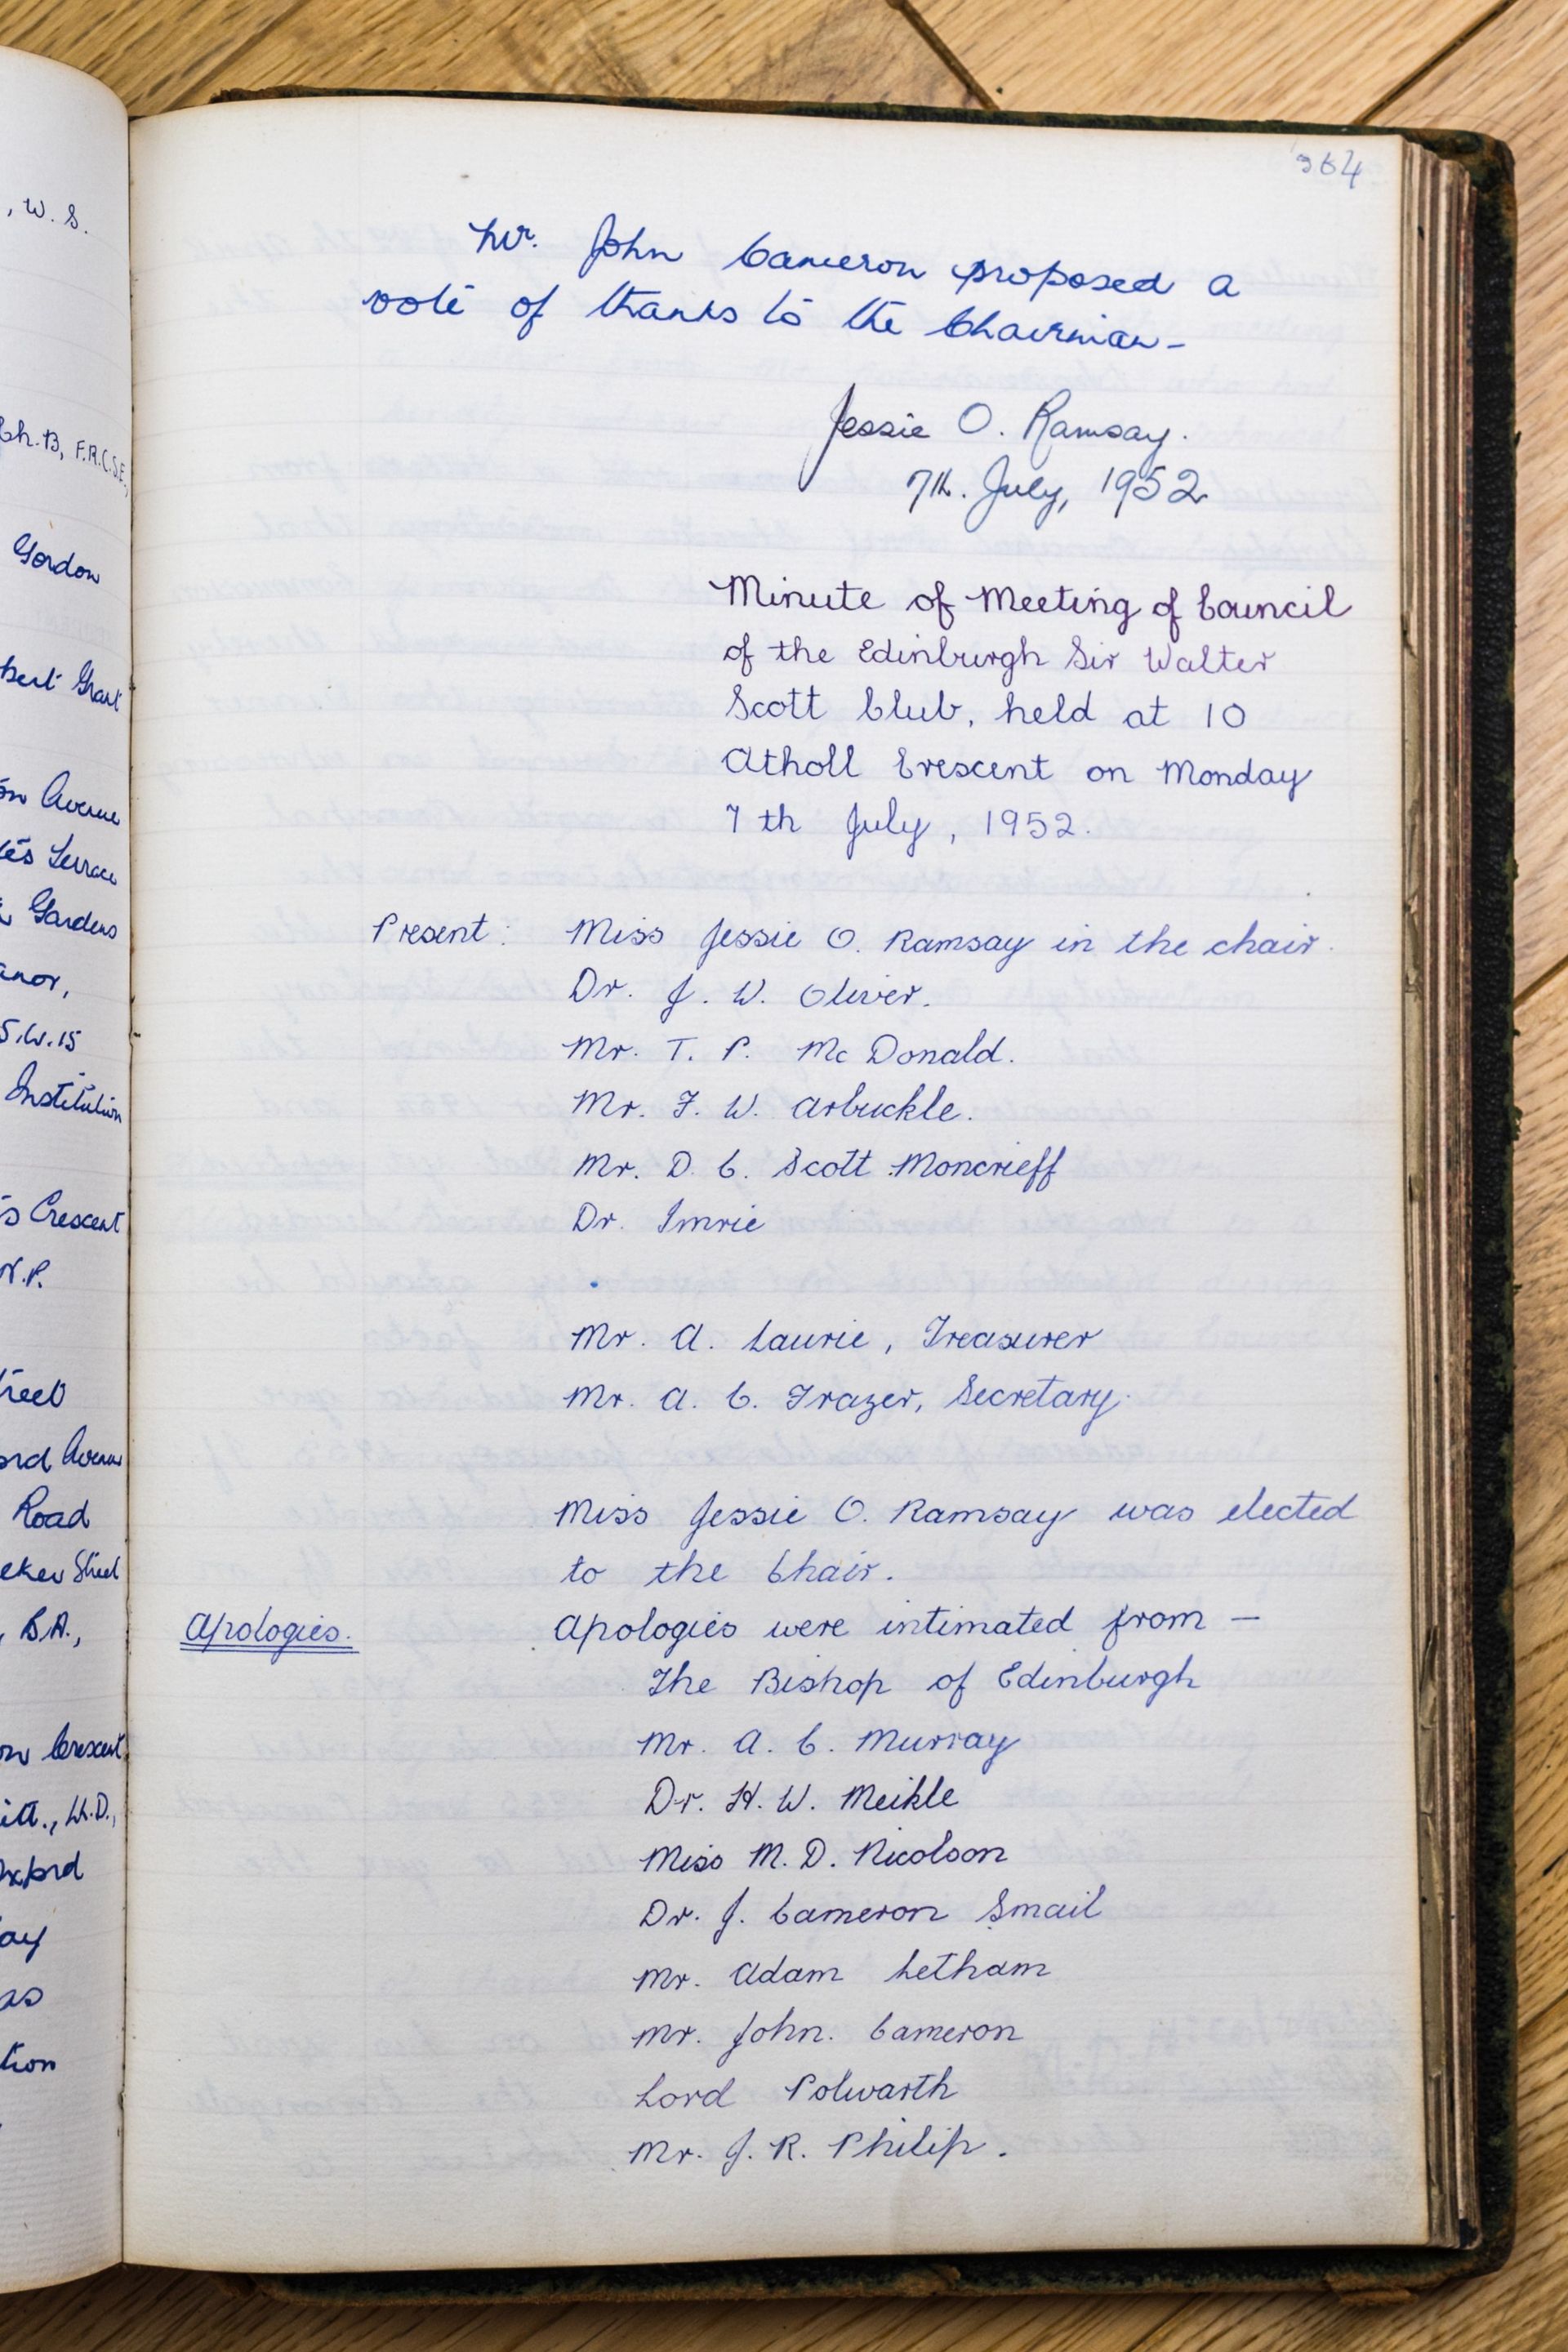 , W. S.
Ch. B, F.R.C.S.E.,
Gordon
Grant
Avenue
Terrace
Gardens
S.W.15
Institution
Crescent
Avenue
Road
Street
, B.A.,
Crescent
364
Mr. John Cameron proposed a
vote of thanks to the Chairman -
Jessie O. Ramsay.
7th. July, 1952
Minute of Meeting of Council
of the Edinburgh Sir Walter
Scott Club, held at 10
Atholl Crescent on Monday
7th July, 1952.
Present: Miss Jessie O. Ramsay in the chair.
Dr. J. W. Oliver.
Mr. T. P. McDonald.
Mr. F. W. Arbuckle.
Mr. D. C. Scott Moncrieff
Dr. Imrie
Mr. A. Laurie, Treasurer
Mr. A. C. Frazer, Secretary.
Miss Jessie O. Ramsay was elected
to the Chair.
Apologies. Apologies were intimated from —
The Bishop of Edinburgh
Mr. A. C. Murray
Dr. H. W. Meikle
Miss M. D. Nicolson
Dr. J. Cameron Smail
Mr. Adam Letham
Mr. John. Cameron
Lord Polwarth
Mr. J. R. Philip.